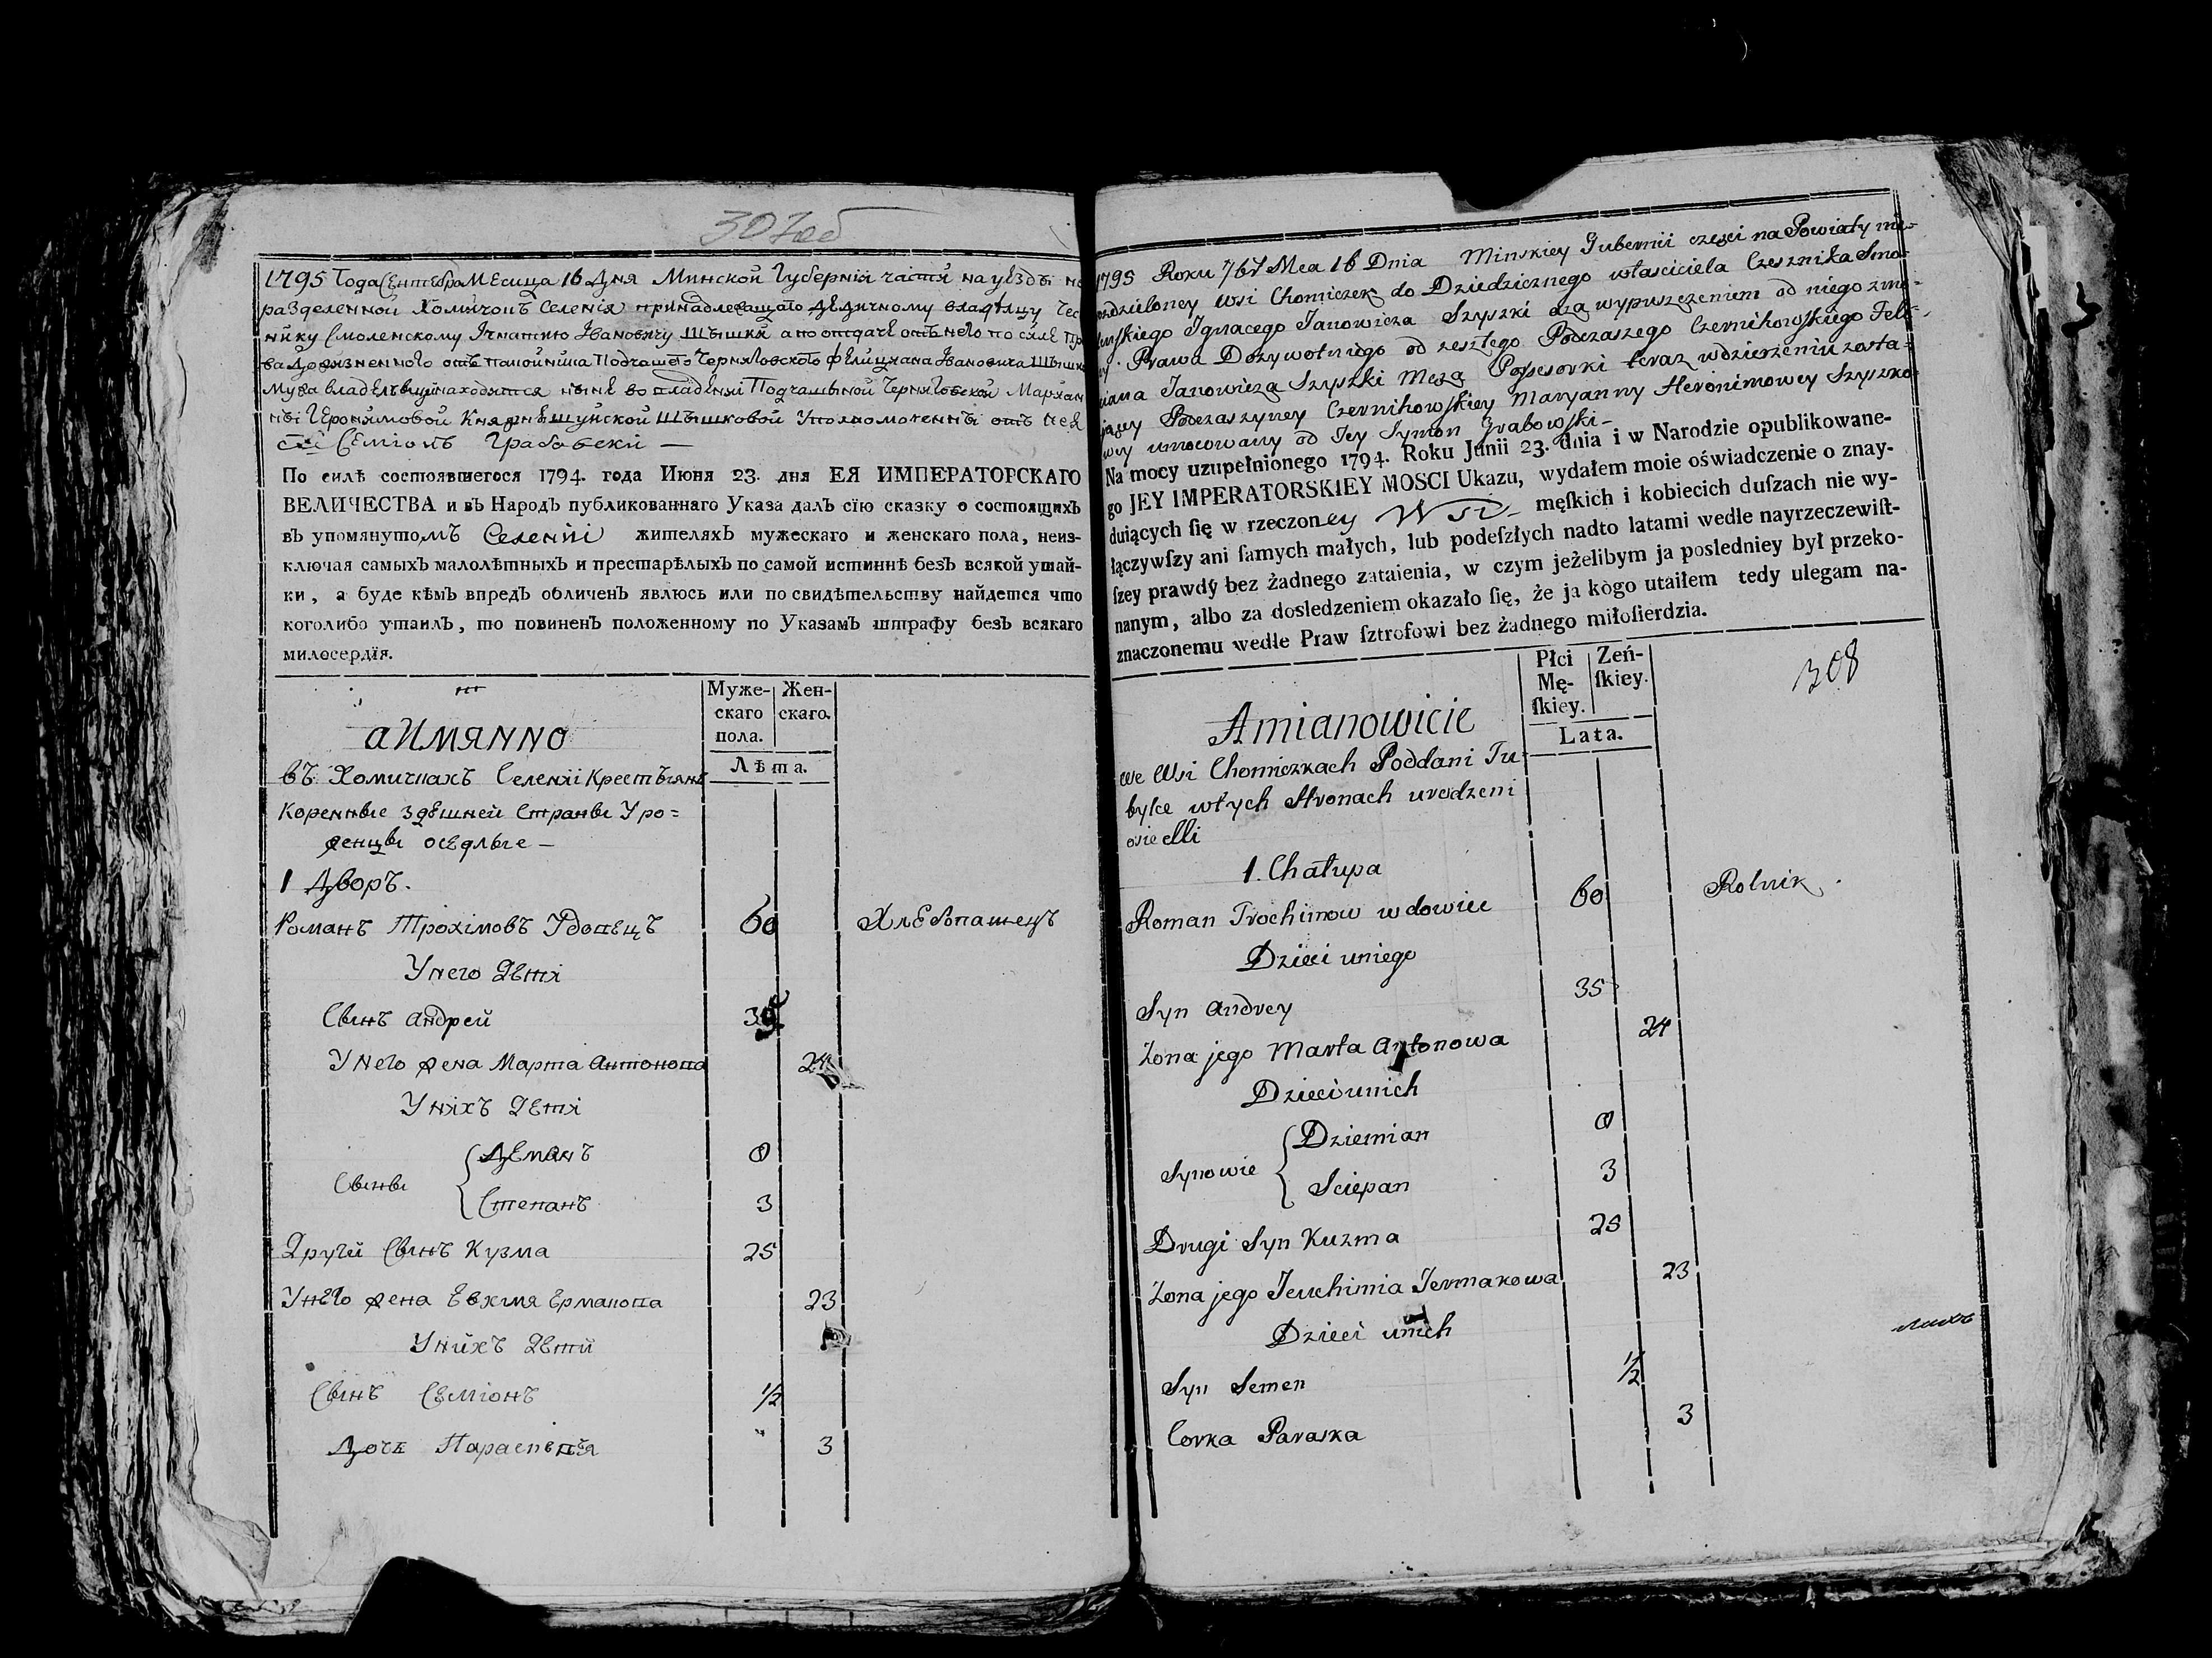 307об
1795 Года Сентебра Месица 16 Дня Минской Губерніи части на уѣзды не
разделенной Хомичокъ Селенія принадлежащаго дедичному владѣлцу Чес
нику Смоленскому Игнатию Ивановичу Шышки а по отдаче отъ него по силе пр
ва Дожизненного отъ покойника Подчашего Черниговского Фелициана Ивановича Шышки
Мужа владелъвци находится ныне во владении Подчашыной Черниговской Мариан
ны Геронимовой Княжны Шуйской Шышковой Уполномоченны отъ нея
Семионъ Грабовски —
По силѣ состоявшегося 1794. года Июня 23. дня ЕЯ ИМПЕРАТОРСКАГО
ВЕЛИЧЕСТВА и въ Народъ публикованнаго Указа далъ сїю сказку о состоящихъ
въ упомянутомъ Селеніи жителяхъ мужескаго и женскаго пола, неиз-
ключая самыхъ малолѣтныхъ и престарѣлыхъ по самой истиннѣ безъ всякой утай-
ки, а буде кѣмъ впредъ обличенъ явлюсь или по свидѣтельству найдется что
коголибо утаилъ, то повиненъ положенному по Указамъ штрафу безъ всякаго
милосердїя.
Муже-скаго пола. Жен-скаго.
Лѣта.
аИМЯННО
въ Хомичкахъ Селеніи Крестъяне
Коренные здешней Страны Уро=
женцы оседлые —
1 Дворъ.
Романъ Трохимовъ Удовецъ 60 Хлебопашецъ
У него Дети
Сынъ Андрей 35
У него жена Марта Антонова 24
У нихъ Дети
Сыны { Деманъ 0
Степанъ 3
Другй Сынъ Кузма 25
У него жена Евхимя Ермакова 23
У нихъ Дети
Сынъ Семіонъ 1/2
Дочь Параскевия 3
1795 Roku 7/bł Mca 16 Dnia Minskiey Gubernii częsci na Powiaty nie-
rozdzieloney wsi Chomiczek do Dziedzicznego własciciela Czesznika Smo-
lenskiego Ignacego Janowicza Szyszki aza wypuszczeniem od niego zmo-
cy Prawa Dozywotniego od zeszłego Podczaszego Czernihowskiego Feli-
ciana Janowicza Szyszki Męza Possesorki teraz wdzierzeniu zosta-
jącey Podczaszyney Czernihowskiey Maryanny Heronimowey Szyszko-
wey umocowany od Jey Symon Grabowski —
Na mocy uzupełnionego 1794. Roku Junii 23. dnia i w Narodzie opublikowane-
go JEY IMPERATORSKIEY MOSCI Ukazu, wydałem moie oświadczenie o znay-
duiących ſię w rzeczoney Wsi męſkich i kobiecich duſzach nie wy-
łączywſzy ani ſamych małych, lub podeſzłych nadto latami wedle nayrzeczewiſt-
ſzey prawdy bez żadnego zataienia, w czym jeżelibym ja posledniey był przeko-
nanym, albo za dosledzeniem okazało ſię, że ja kogo utaiłem tedy ulegam na-
znaczonemu wedle Praw ſztrofowi bez żadnego miłoſierdzia.
Płci Mę-ſkiey. Zeń-ſkiey.
Lata.
308
Amianowicie
we Wsi Chomiczkach Poddani Tu-
bylce wtych Stronach urodzeni
osiedli
1. Chałupa
Roman Trochimow wdowiec 60 Rolnik.
Dzieci uniego
Syn Andrey 35
Zona jego Marta Antonowa 24
Dzieci unich
Synowie { Dziemian 0
Sciepan 3
Drugi Syn Kuzma 25
Zona jego Jeuchimia Jermakowa 23
Dzieci unich
Syn Semen 1/2
Corka Paraska 3